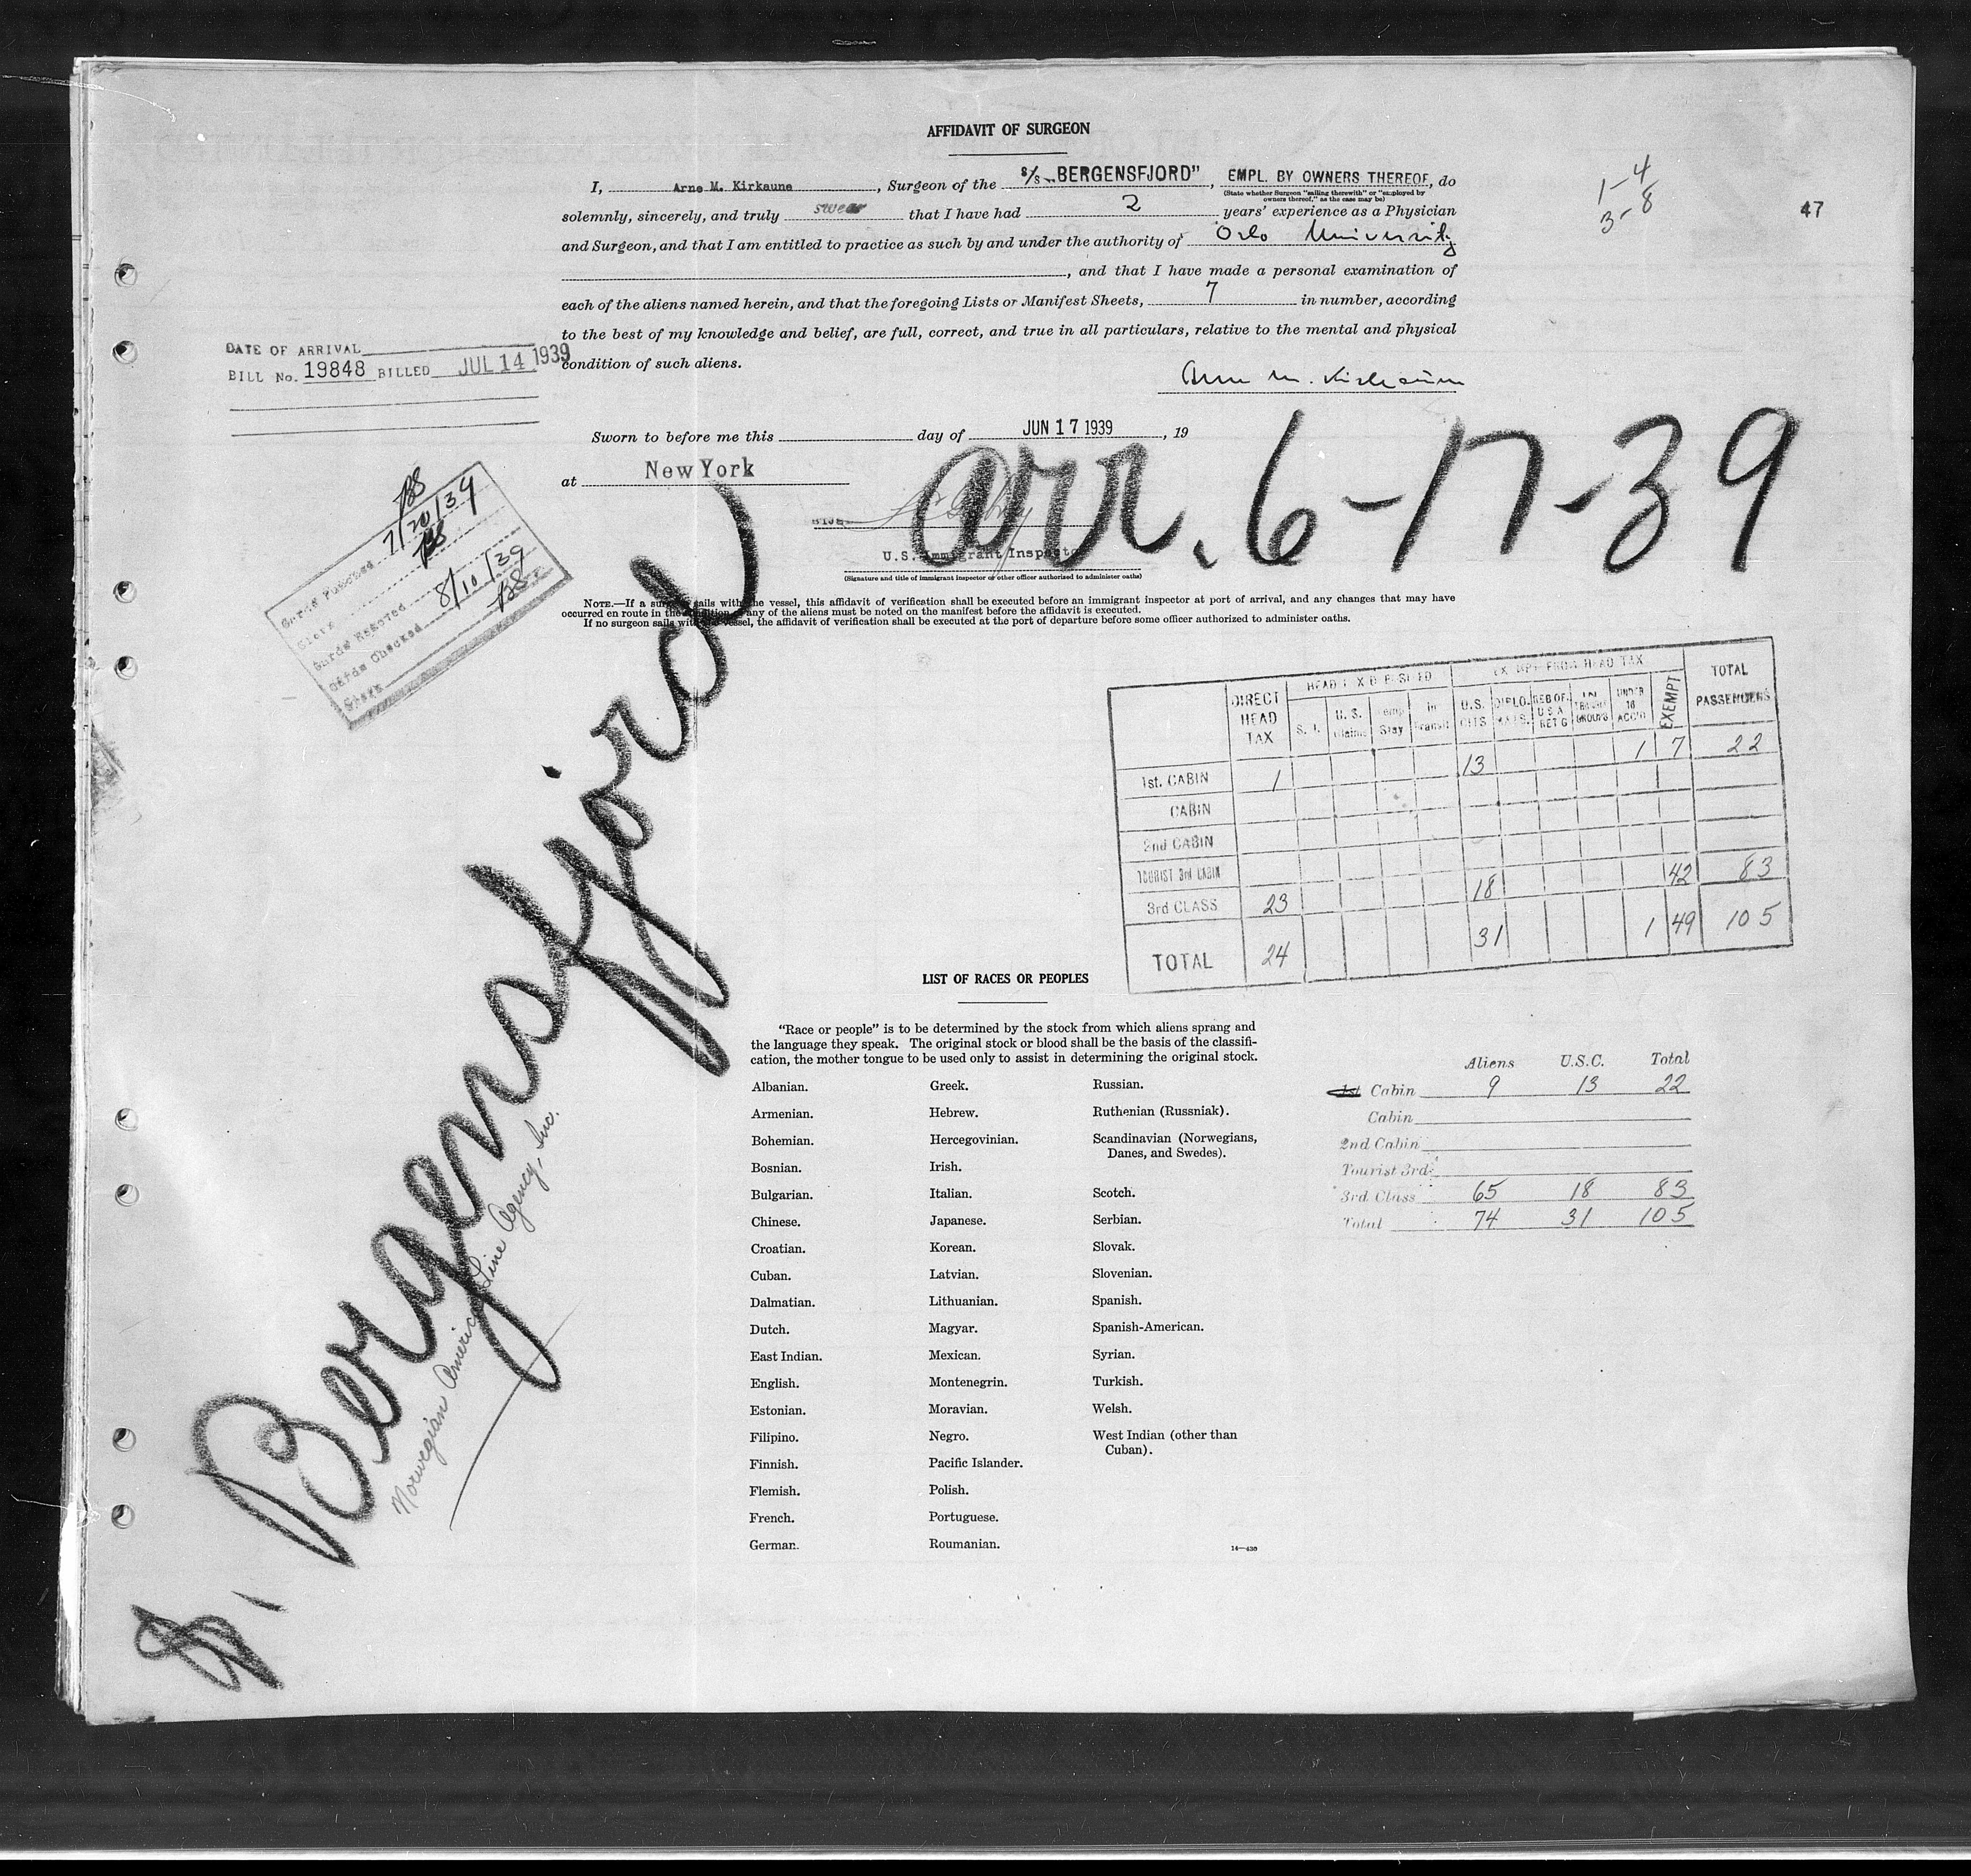 AFFIDAVIT OF SURGEON
I, Arne M. Kirkaune, Surgeon of the S/S „BERGENSFJORD”, EMPL. BY OWNERS THEREOF, do
(State whether Surgeon "sailing therewith" or "employed by
owners thereof," as the case may be)
solemnly, sincerely, and truly swear that I have had 2 years' experience as a Physician
and Surgeon, and that I am entitled to practice as such by and under the authority of Oslo University
, and that I have made a personal examination of
each of the aliens named herein, and that the foregoing Lists or Manifest Sheets, 7 in number, according
to the best of my knowledge and belief, are full, correct, and true in all particulars, relative to the mental and physical
condition of such aliens.
Arne M. Kirkaune
1-4
3-8
47
DATE OF ARRIVAL
BILL No. 19848 BILLED JUL 14 1939
Sworn to before me this day of JUN 17 1939, 19
at New York
arr. 6-17-39
U.S. Immigrant Inspector
(Signature and title of immigrant inspector or other officer authorized to administer oaths)
NOTE.—If a surgeon sails with the vessel, this affidavit of verification shall be executed before an immigrant inspector at port of arrival, and any changes that may have
occurred en route in the condition of any of the aliens must be noted on the manifest before the affidavit is executed.
If no surgeon sails with the vessel, the affidavit of verification shall be executed at the port of departure before some officer authorized to administer oaths.
Cards Punched 7/20/39
Clerk
Cards Removed
Cards Checked 8/10/39
Clerk
S. Bergensfjord
Norwegian America Line Agency, Inc.
DIRECT HEAD TAX
EXEMPT FROM HEAD TAX
TOTAL PASSENGERS
S. I.
U. S. Claims
Temp Stay
In Transit
U.S. CITS.
DIPLO-MATS.
REB OF. U S A RET'G
IN TRANSIT GROUPS
UNDER 16 ACC'D
EXEMPT
1st. CABIN 1 13 1 7 22
CABIN
2nd CABIN
TOURIST 3rd CABIN
3rd CLASS 23 18 42 83
TOTAL 24 31 1 49 105
LIST OF RACES OR PEOPLES
"Race or people" is to be determined by the stock from which aliens sprang and
the language they speak. The original stock or blood shall be the basis of the classifi-
cation, the mother tongue to be used only to assist in determining the original stock.
Albanian.
Armenian.
Bohemian.
Bosnian.
Bulgarian.
Chinese.
Croatian.
Cuban.
Dalmatian.
Dutch.
East Indian.
English.
Estonian.
Filipino.
Finnish.
Flemish.
French.
German.
Greek.
Hebrew.
Hercegovinian.
Irish.
Italian.
Japanese.
Korean.
Latvian.
Lithuanian.
Magyar.
Mexican.
Montenegrin.
Moravian.
Negro.
Pacific Islander.
Polish.
Portuguese.
Roumanian.
Russian.
Ruthenian (Russniak).
Scandinavian (Norwegians,
Danes, and Swedes).
Scotch.
Serbian.
Slovak.
Slovenian.
Spanish.
Spanish-American.
Syrian.
Turkish.
Welsh.
West Indian (other than
Cuban).
14—438
Aliens U.S.C. Total
1st Cabin 9 13 22
Cabin
2nd Cabin
Tourist 3rd
3rd Class 65 18 83
Total 74 31 105